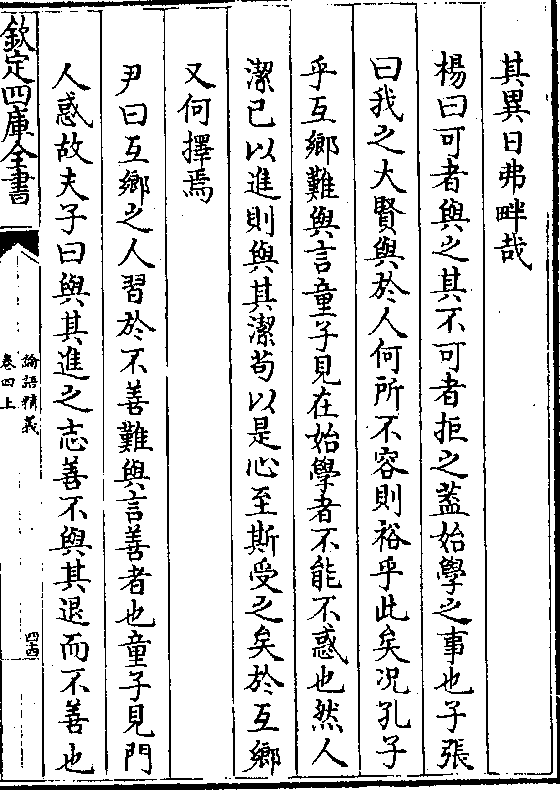 其異日弗畔哉
楊曰可者與之其不可者拒之蓋始學之事也子張
曰我之大賢與於人何所不容則裕乎此矣况孔子
乎互鄉難與言童子見在始學者不能不惑也然人
潔已以進則與其潔茍以是心至斯受之矣於互鄉
又何擇焉
尹曰互鄉之人習於不善難與言善者也童子見門
人惑故夫子曰與其進之志善不與其退而不善也
欽定四庫全書
論語精義
卷四上
四